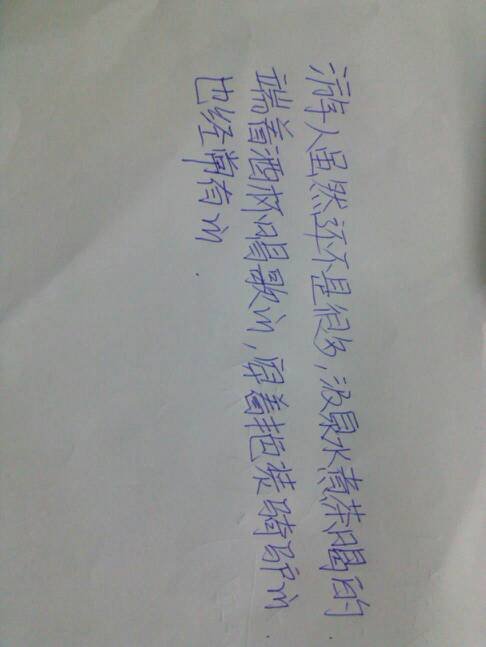 游人虽然还不是很多,汲泉水煮茶喝的
端着酒杯唱歌的,穿着艳装骑驴的
也经常有的.